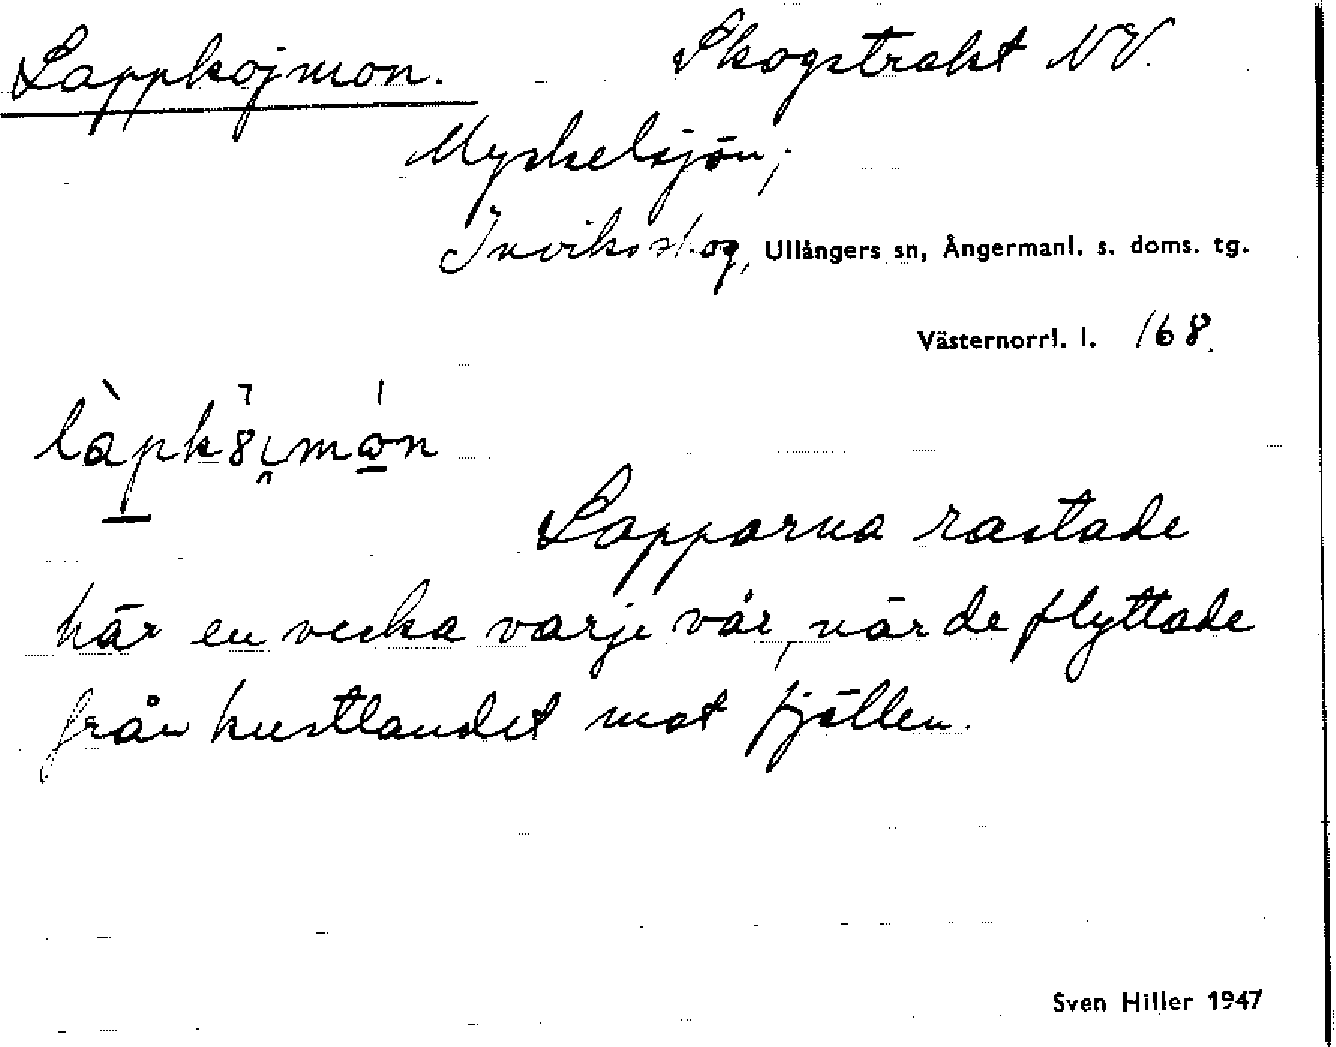 Lappkojmon. Skogstrakt NV.
Myckelsjön;
Invikss​kog, Ullångers sn, Ångermanl. s. doms. tg.
Västernorrl. l. 168.
Lapparna rastade
här en vecka varje vår, när de flyttade
från kustlandet mot fjällen.
Sven Hiller 1947